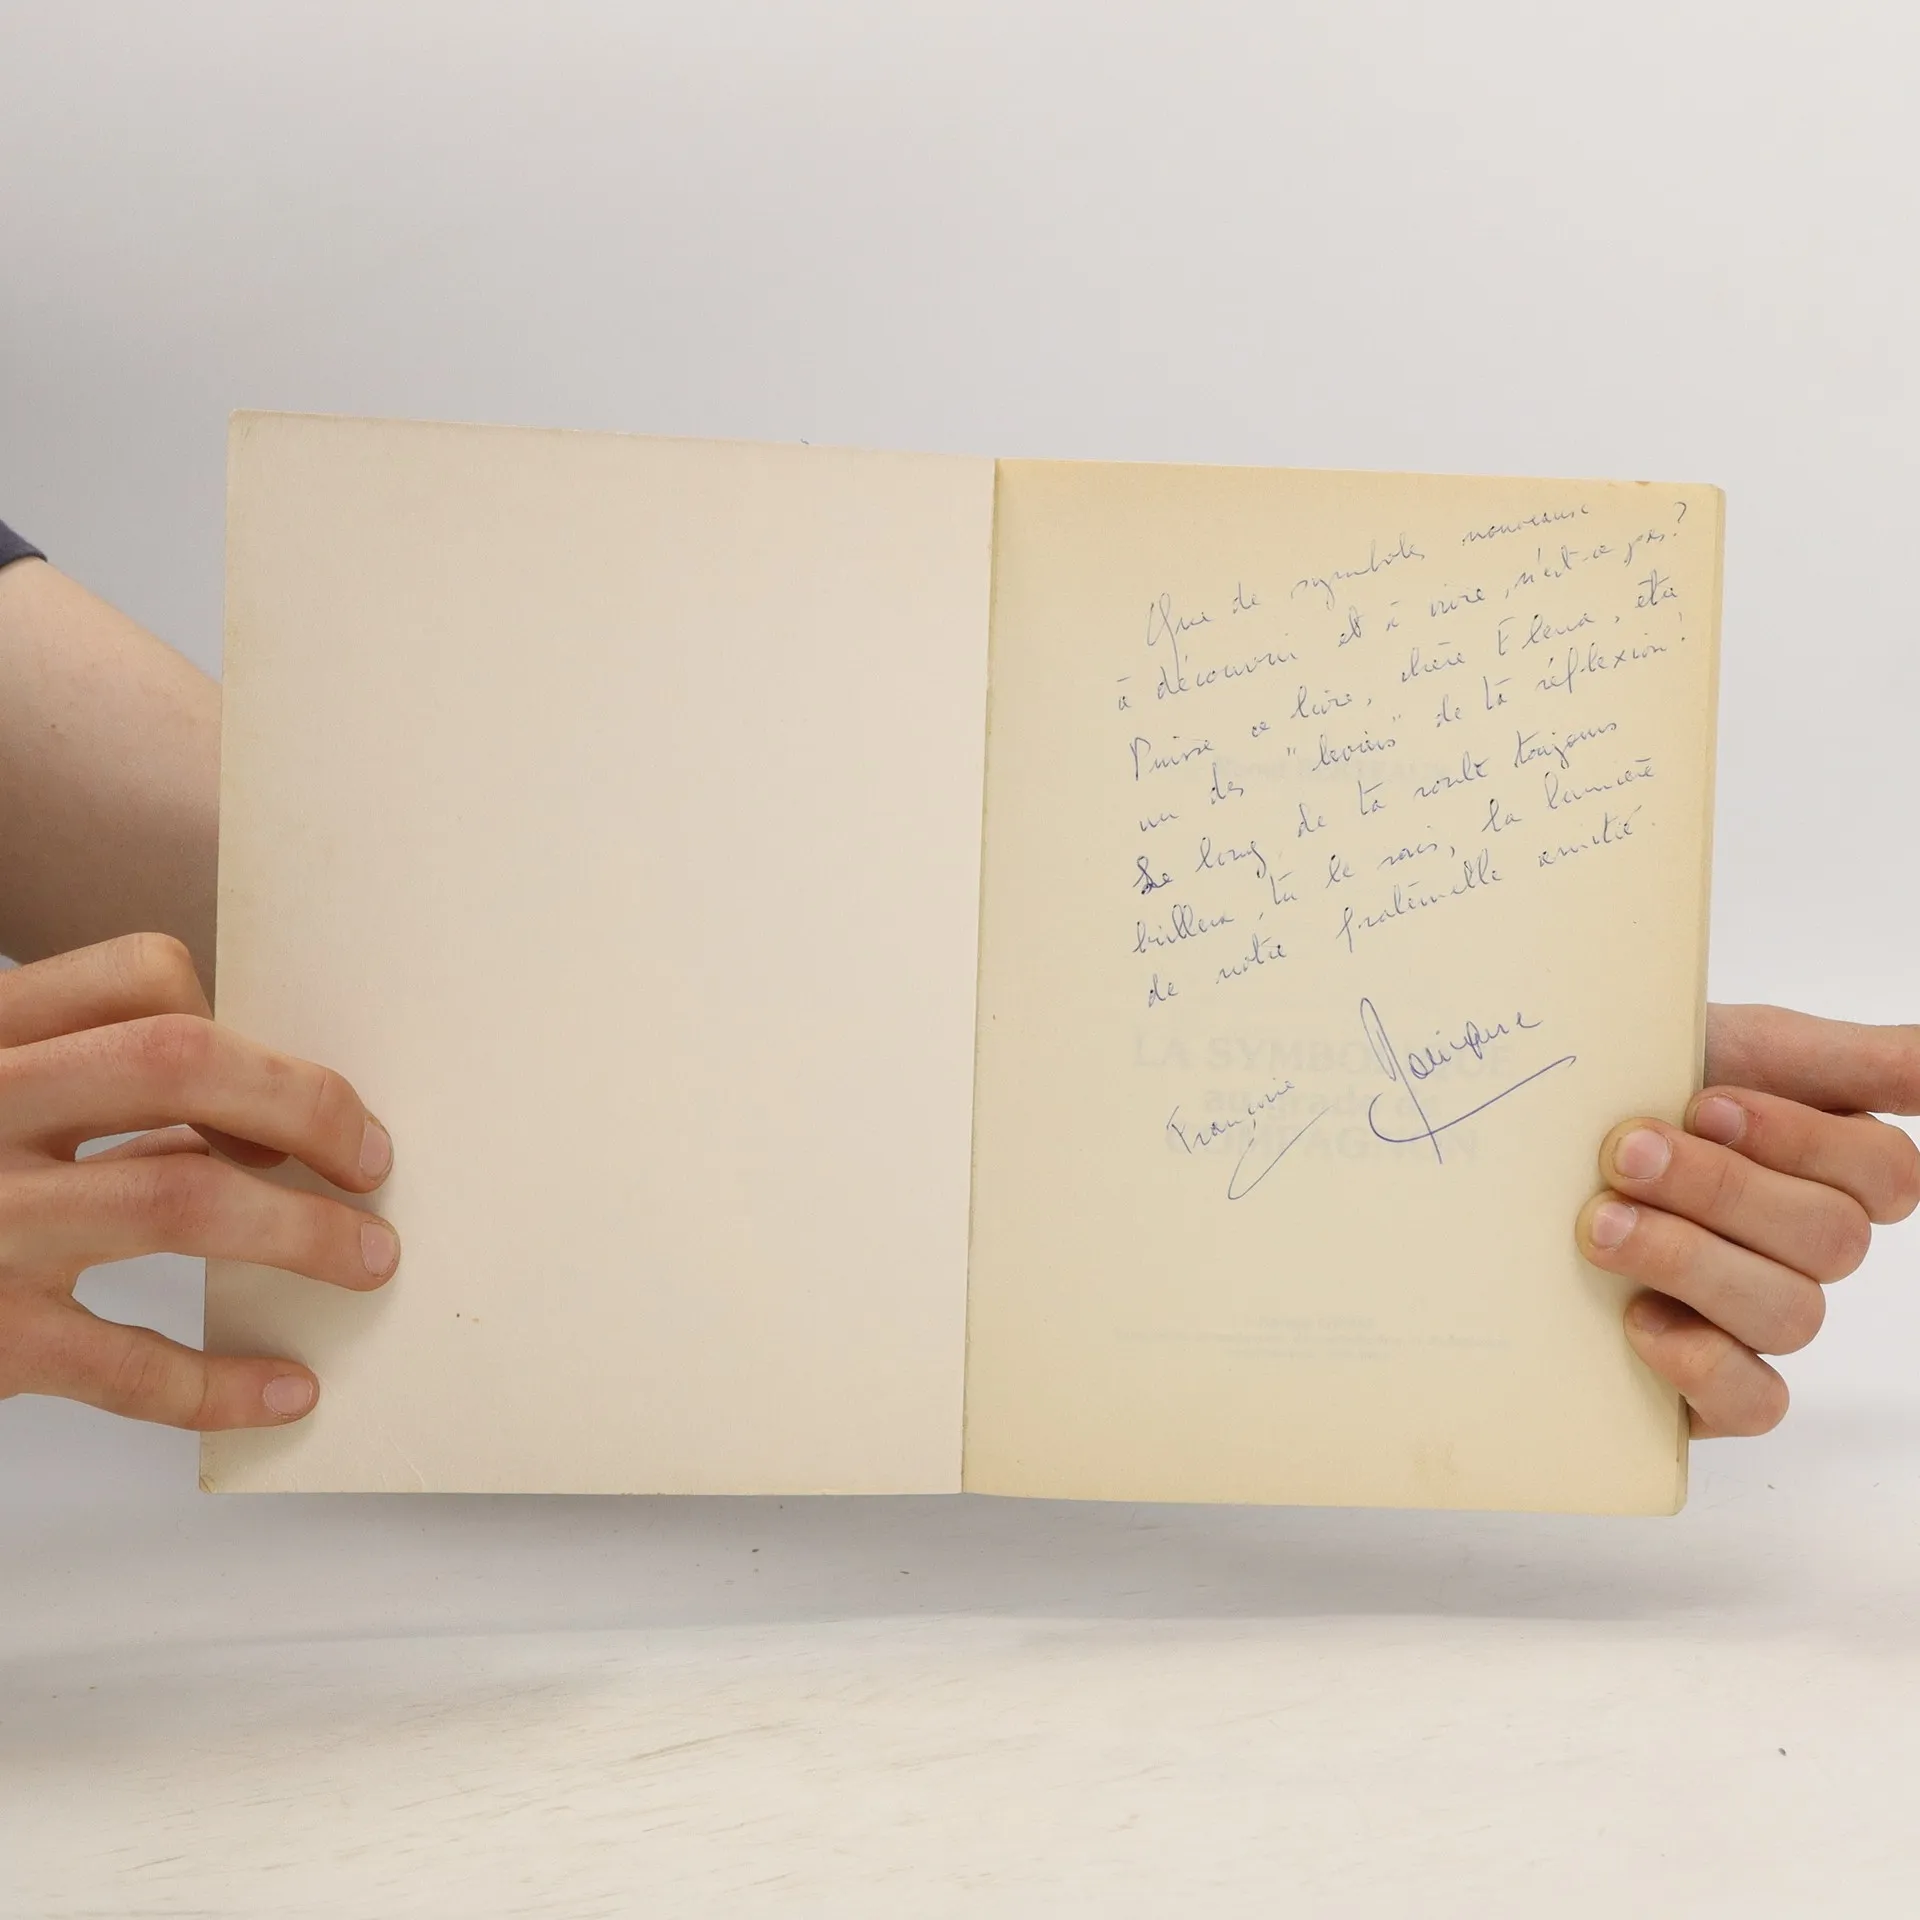 Que de symboles nouveaux
à découvrir et à vivre, n'est-ce pas ?
Puisse ce livre, chère Elena, être
un des "levains" de ta réflexion !
Le long de ta route toujours
brillera, tu le sais, la lumière
de notre fraternelle amitié.
Monique
Françoise
LA SYMBOLIQUE
au grade de
COMPAGNON